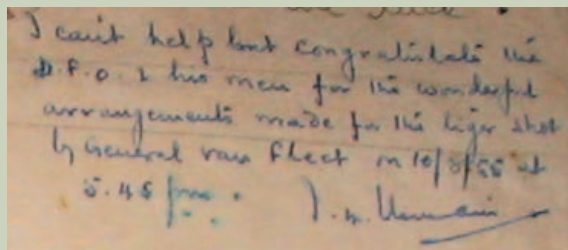 I can't help but congratulate the
D.F.O. & his men for the wonderful
arrangements made for the tiger shot
by General van Fleet on 10/3/55 at
5.45 pm.